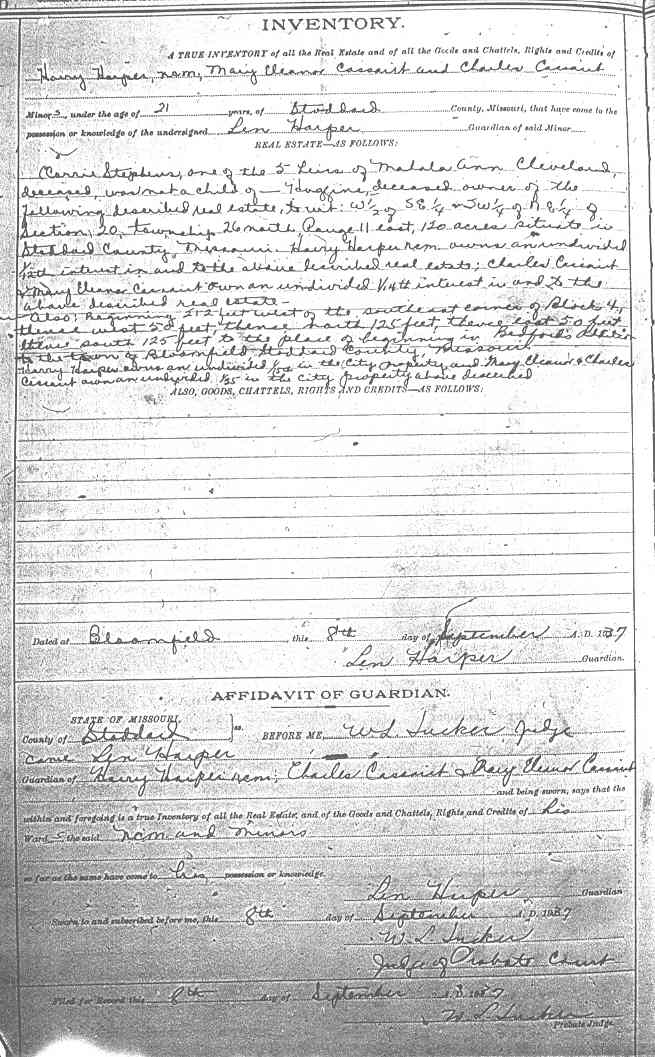 INVENTORY.
A TRUE INVENTORY of all the Real Estate and of all the Goods and Chattels, Rights and Credits of
Harry Harper, ncm, Mary Eleanor Cassaint and Charles Cassaint
Minors, under the age of 21 years, of Stoddard County, Missouri, that have come to the
possession or knowledge of the undersigned Len Harper Guardian of said Minor
REAL ESTATE—AS FOLLOWS:
Carrie Stephens, one of the 5 heirs of Mahala Ann Cleveland,
deceased, was not a child of — Huggins, deceased owner of the
following described real estate, to wit: W½ of SE¼ SW¼ of NE¼ of
Section, 20, township 26 north, Range 11 east, 120 acres situate in
Stoddard County, Missouri. Harry Harper ncm. owns an undivided
interest in and to the above described real estate; Charles Cassaint
& Mary Eleanor Cassaint own an undivided interest in and to the
above described real estate—
Also; Beginning 212 feet west of the southeast corner of Block 4,
thence west 50 feet, thence north 125 feet, thence east 50 feet
thence south 125 feet to the place of beginning in Bedford's Addition
to the town of Bloomfield, Stoddard County, Missouri
Harry Harper owns an undivided in the City Property and Mary Eleanor & Charles
Cassaint own an undivided in the city property above described
ALSO, GOODS, CHATTELS, RIGHTS AND CREDITS—AS FOLLOWS:
Dated at Bloomfield this 8th day of September A. D. 1937
Len Harper Guardian.
AFFIDAVIT OF GUARDIAN.
STATE OF MISSOURI,
County of Stoddard ss. BEFORE ME, W L Tucker Judge
came Len Harper
Guardian of Harry Harper ncm; Charles Cassaint & Mary Eleanor Cassaint
and being sworn, says that the
within and foregoing is a true Inventory of all the Real Estate, and of the Goods and Chattels, Rights and Credits of his
Ward s the said ncm and minors
so far as the same have come to his possession or knowledge.
Len Harper Guardian
Sworn to and subscribed before me, this 8th day of September A. D. 1937
W L Tucker
Judge of Probate Court
Filed for Record this 8th day of September A. D. 1937
W L Tucker
Probate Judge.